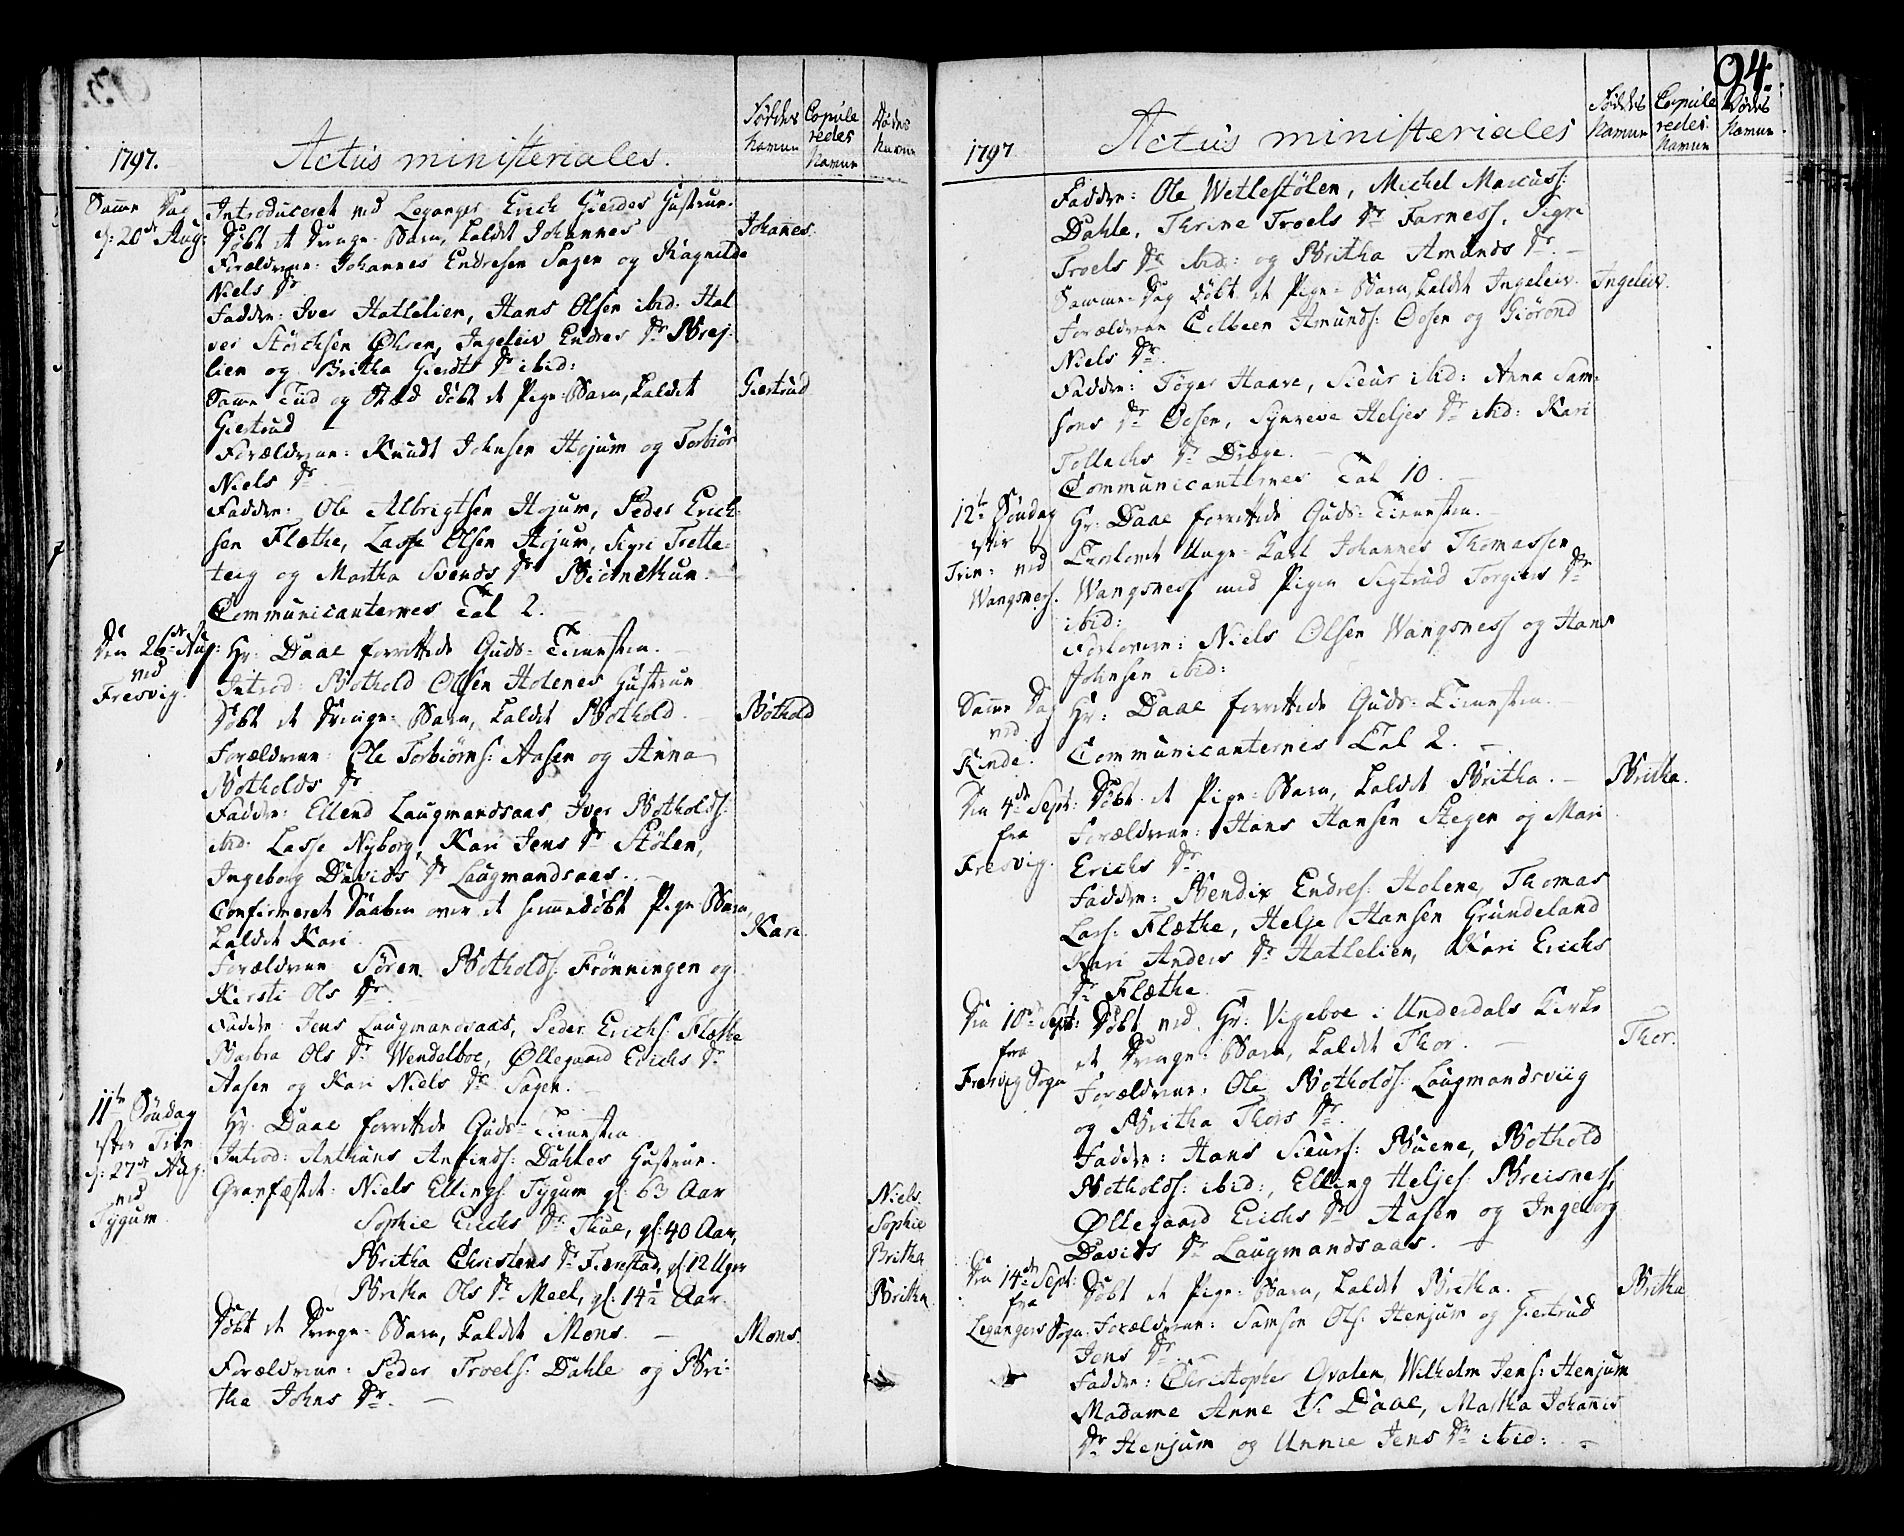 94.
1797.
Actus ministeriales.
Føddes Navne
Copule redes Navne
Dødes Navne
Samme Dag
d: 20de Aug:
Introduceret ved Leganger Erich Gierdes Hustrue.
Døbt et Drenge-Barn, kaldet Johannes
Johannes.
Forældrene: Johannes Endresen Sagen og Ragnilde
Niels Dr
Faddere: Iver Hatlelien, Hans Olsen ibid: Hal
vor Størchsen Øhren, Ingeleiv Endres Dr Brej-
lien og Britha Gierdts Dr ibid:
Samme Tiid og Stæd døbt et Pige-Barn, kaldet
Giertrud
Giertrud
Forældrene: Knudt Johnsen Hojum og Torbiør
Niels Dr
Faddere: Ole Albrigtsen Hojum, Peder Erich-
sen Flæthe, Lasse Olsen Hojum, Sigri Tretте-
teig og Martha Svends Dr
Communicanternes Tal 2.
Den 26de Aug:
ved
Fresvig.
Hr: Daae forrettede Guds-Tienesten.
Introd: Bothold Olsen Holenes Hustrue
Døbt et Drenge-Barn, kaldet Bothold.
Bothold
Forældrene: Ole Torbiørns: Aasen og Anna
Botholds Dr
Faddere: Ellend Laugmandsaas, Iver Botholds:
ibid. Lasse Nyborg, Kari Jens Dr Stølen,
Ingeborg Davids Dr Laugmandsaas.
Confirmeret Daaben over et hiemmedøbt Pige-Barn,
kaldet Kari
Kari.
Forældrene Søren Botholds: Frønningen og
Kirsti Ols Dr
Faddere: Jens Laugmandsaas, Peder Erichs: Flæthe
Barbra Ols Dr Wendelboe, Øllegaard Erichs Dr
Aasen og Kari Niels Dr Sagen.
11te Søndag
efter Trin:
d: 27de Aug:
ved
Tygum
Hr: Daae forrettede Guds-Tienesten
Introd: Anthuns Anfinds: Dahles Hustrue.
Gravfæstet: Niels Ellings: Tygum gl: 63 Aar
Niels.
Sophie Erichs Dr Thue, gl: 40 Aar,
Sophie
Britha Christens Dr Fienstad, gl: 12 Uger
Britha
Britha Ols Dr Meel, gl: 14½ Aar.
Britha
Døbt et Drenge-Barn, kaldet Mons.
Mons.
Forældrene: Peder Troels: Dahle og Bri-
tha Johns Dr
1797
Actus ministeriales
Føddes Navne
Copule redes Navne
Dødes Navne
Faddere: Ole Wetlestølen, Michel Marcus:
Dahle, Thrine Troels Dr Farness, Sigri
Troels Dr ibid: og Britha Amunds Dr
Samme Dag døbt et Pige-Barn, kaldet Ingeleiv.
Ingeleiv.
Forældrene Colbeen Amunds: Oosen og Giørond
Niels Dr
Faddere: Tøger Haave, Sieur ibid: Anna Sam-
sons Dr Oosen, Synneve Heljes Dr ibid: Kari
Tollachs Dr Dræge.
Communicanternes Tal 10.
12te Søndag
efter
Trin: ved
Wangsness.
Hr: Daae forrettede Guds-Tienesten.
Trolovet Unge-Karl Johannes Thomassen
Wangsness med Pigen Sigtrud Torgiers Dr
ibid:
Forlovere: Niels Olsen Wangsness og Hans
Johnsen ibid:
Samme Dag
ved
Kinde.
Hr: Daae forrettede Guds-Tienesten.
Communicanternes Tal 2.
Den 4de Sept:
fra
Fresvig.
Døbt et Pige-Barn, kaldet Britha.
Britha.
Forældrene: Hans Hansen Stegen og Mari
Erichs Dr
Faddere: Bendix Endres: Holene, Thomas
Lars: Flæthe, Helje Hansen Grundeland
Kari Anders Dr Hatlelien, Kari Erichs
Dr Flæthe
Den 10de Sept:
fra
Fresvig Sogn
Døbt ved Hr: Vigeboe i Underdals Kirke
et Drenge-Barn, kaldet Thor.
Thor.
Forældrene: Ole Botholds: Laugmandsviig
og Britha Thors Dr
Faddere: Hans Sieurs: Buene, Bothold
Botholds: ibid:, Elling Heljes: Breisness,
Øllegaard Erichs Dr Aasen og Ingeborg
Davids Dr Laugmandsaas.
Den 14de Sept:
fra
Legangers Sogn.
Døbt et Pige-Barn, kaldet Britha.
Britha
Forældrene: Samson Ols: Henjum og Giertrud
Jens Dr
Faddere: Christopher Qvalen, Wilhelm Jens: Henjum
Madame Anne Daae, Martha Johannis
Dr Henjum og Unnie Jens Dr ibid: